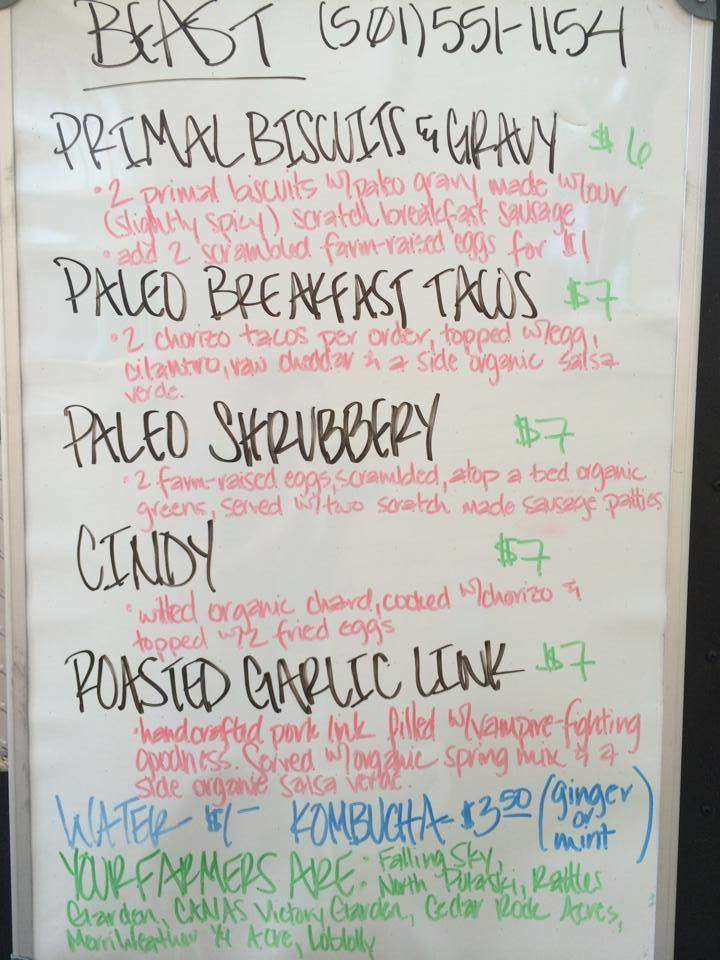 BEAST (501)551-1154
PRIMAL BISCUITS & GRAVY $6
• 2 primal biscuits w/paleo gravy made w/our
(slightly spicy) scratch breakfast sausage
• add 2 scrambled farm-raised eggs for $1
PALEO BREAKFAST TACOS $7
• 2 chorizo tacos per order, topped w/egg,
cilantro, raw cheddar & a side organic salsa
verde.
PALEO SHRUBBERY $7
• 2 farm-raised eggs, scrambled, atop a bed organic
greens, served w/two scratch made sausage patties
CINDY $7
• wilted organic chard, cooked w/chorizo &
topped w/2 fried eggs
ROASTED GARLIC LINK $7
• handcrafted pork link filled w/vampire-fighting
goodness. Served w/organic spring mix & a
side organic salsa verde.
WATER- $1- KOMBUCHA- $3.50 (ginger
or
mint)
YOUR FARMERS ARE: Falling Sky,
North Pulaski, Rattles
Garden, CANAS Victory Garden, Cedar Rock Acres,
MerriWeather ¼ Acre, Loblolly